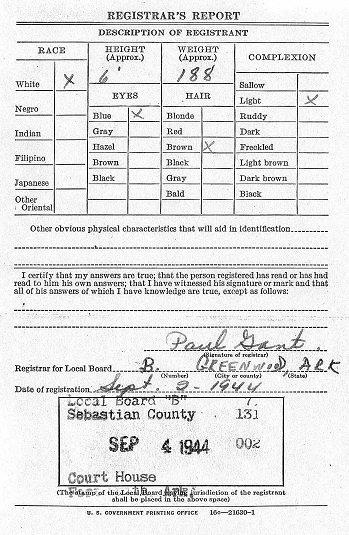 REGISTRAR'S REPORT
DESCRIPTION OF REGISTRANT
RACE
HEIGHT (Approx.)
WEIGHT (Approx.)
COMPLEXION
White X
6'
188
Sallow
Light X
EYES
HAIR
Negro
Blue X
Blonde
Ruddy
Indian
Gray
Red
Dark
Hazel
Brown X
Freckled
Filipino
Brown
Black
Light brown
Japanese
Black
Gray
Dark brown
Other Oriental
Bald
Black
Other obvious physical characteristics that will aid in identification
I certify that my answers are true; that the person registered has read or has had
read to him his own answers; that I have witnessed his signature or mark and that
all of his answers of which I have knowledge are true, except as follows:
Paul Gant.
(Signature of registrar)
Registrar for Local Board B. GREENWOOD, ARK
(Number) (City or county) (State)
Date of registration Sept. 2-1944
Local Board "B"
Sebastian County 131
SEP 4 1944 002
Court House
(The stamp of the Local Board having jurisdiction of the registrant
shall be placed in the above space)
U. S. GOVERNMENT PRINTING OFFICE 16c—21630-1